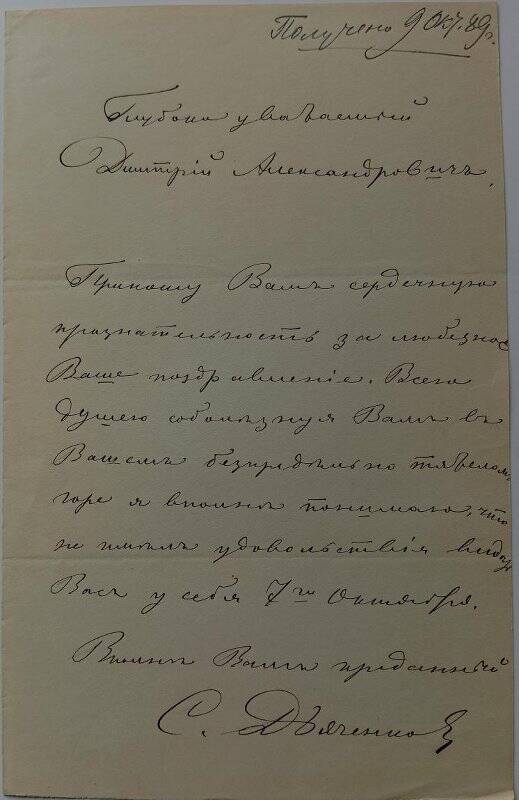 Получено 9 Окт. 89 г.
Глубоко уважаемый
Дмитрій Александровичъ.
Приношу Вамъ сердечную
признательность за любезное
Ваше поздравленіе. Всею
душею соболѣзнуя Вамъ въ
Вашемъ безпредѣльно тяжеломъ
горе я вполнѣ понимаю, что
не имѣлъ удовольствія видѣть
Васъ у себя 7го Октября.
Вполнѣ Вамъ преданный
С. Дьяченко